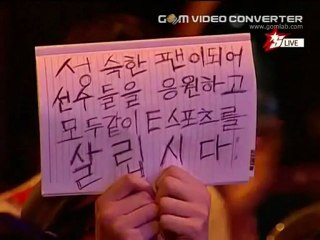 GOM VIDEO CONVERTER
www.gomlab.com
LIVE
성숙한 팬이되어
선수들을 응원하고
모두같이 E스포츠를
살립시다!